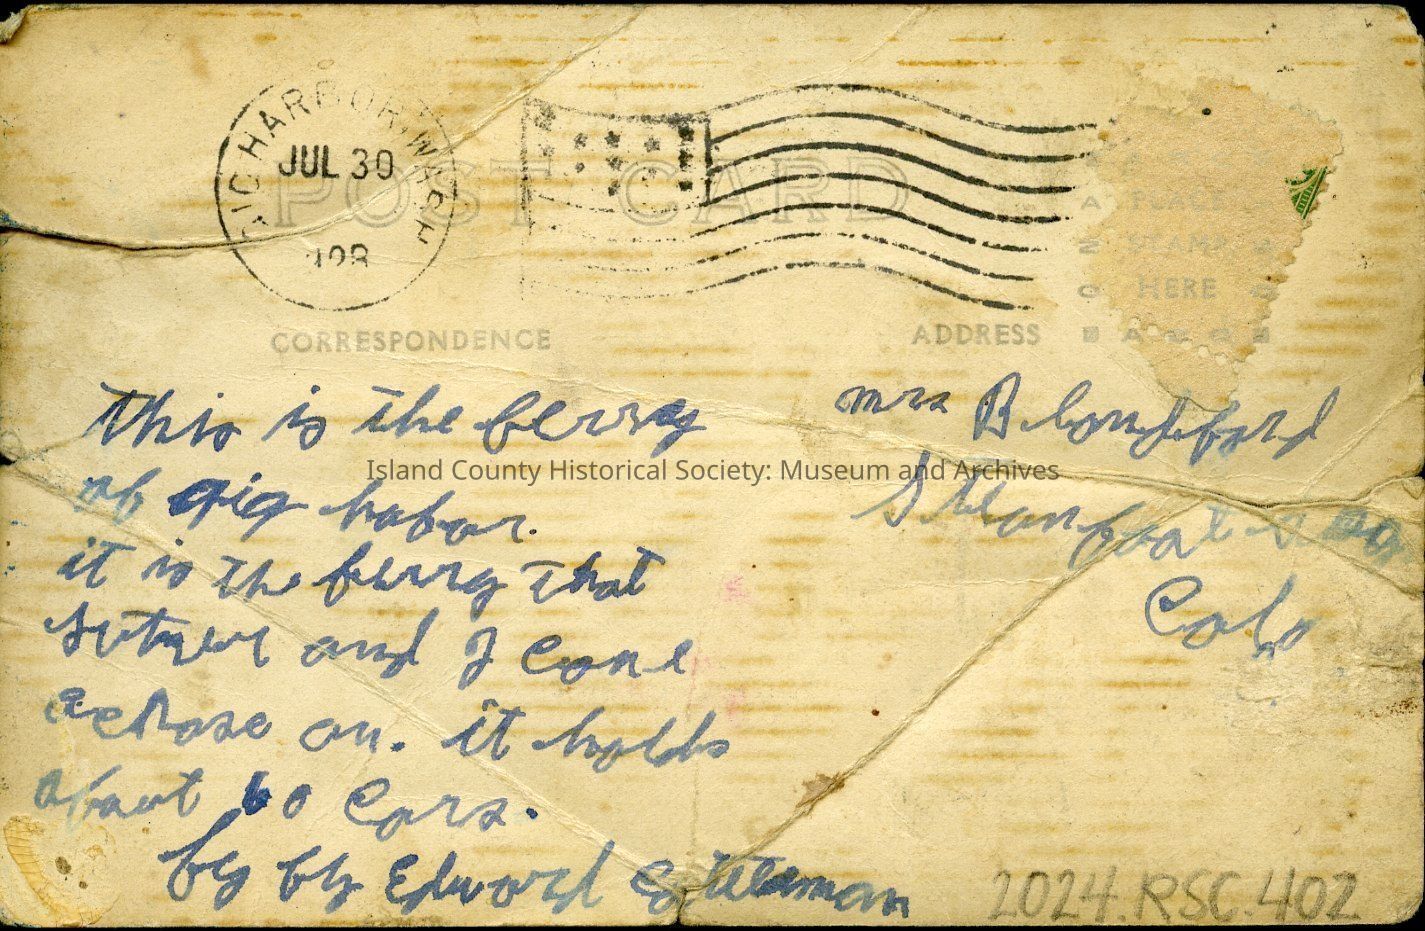 GIG HARBOR, WASH
JUL 30
POST CARD
PLACE
STAMP
HERE
CORRESPONDENCE
ADDRESS
this is the ferry
of gig habor.
it is the ferry that
and I come
on. it holds
about 60 cars.
by by Edward
mrs B longsford
Steamboat
Colo
Island County Historical Society: Museum and Archives
2024.RSC.402